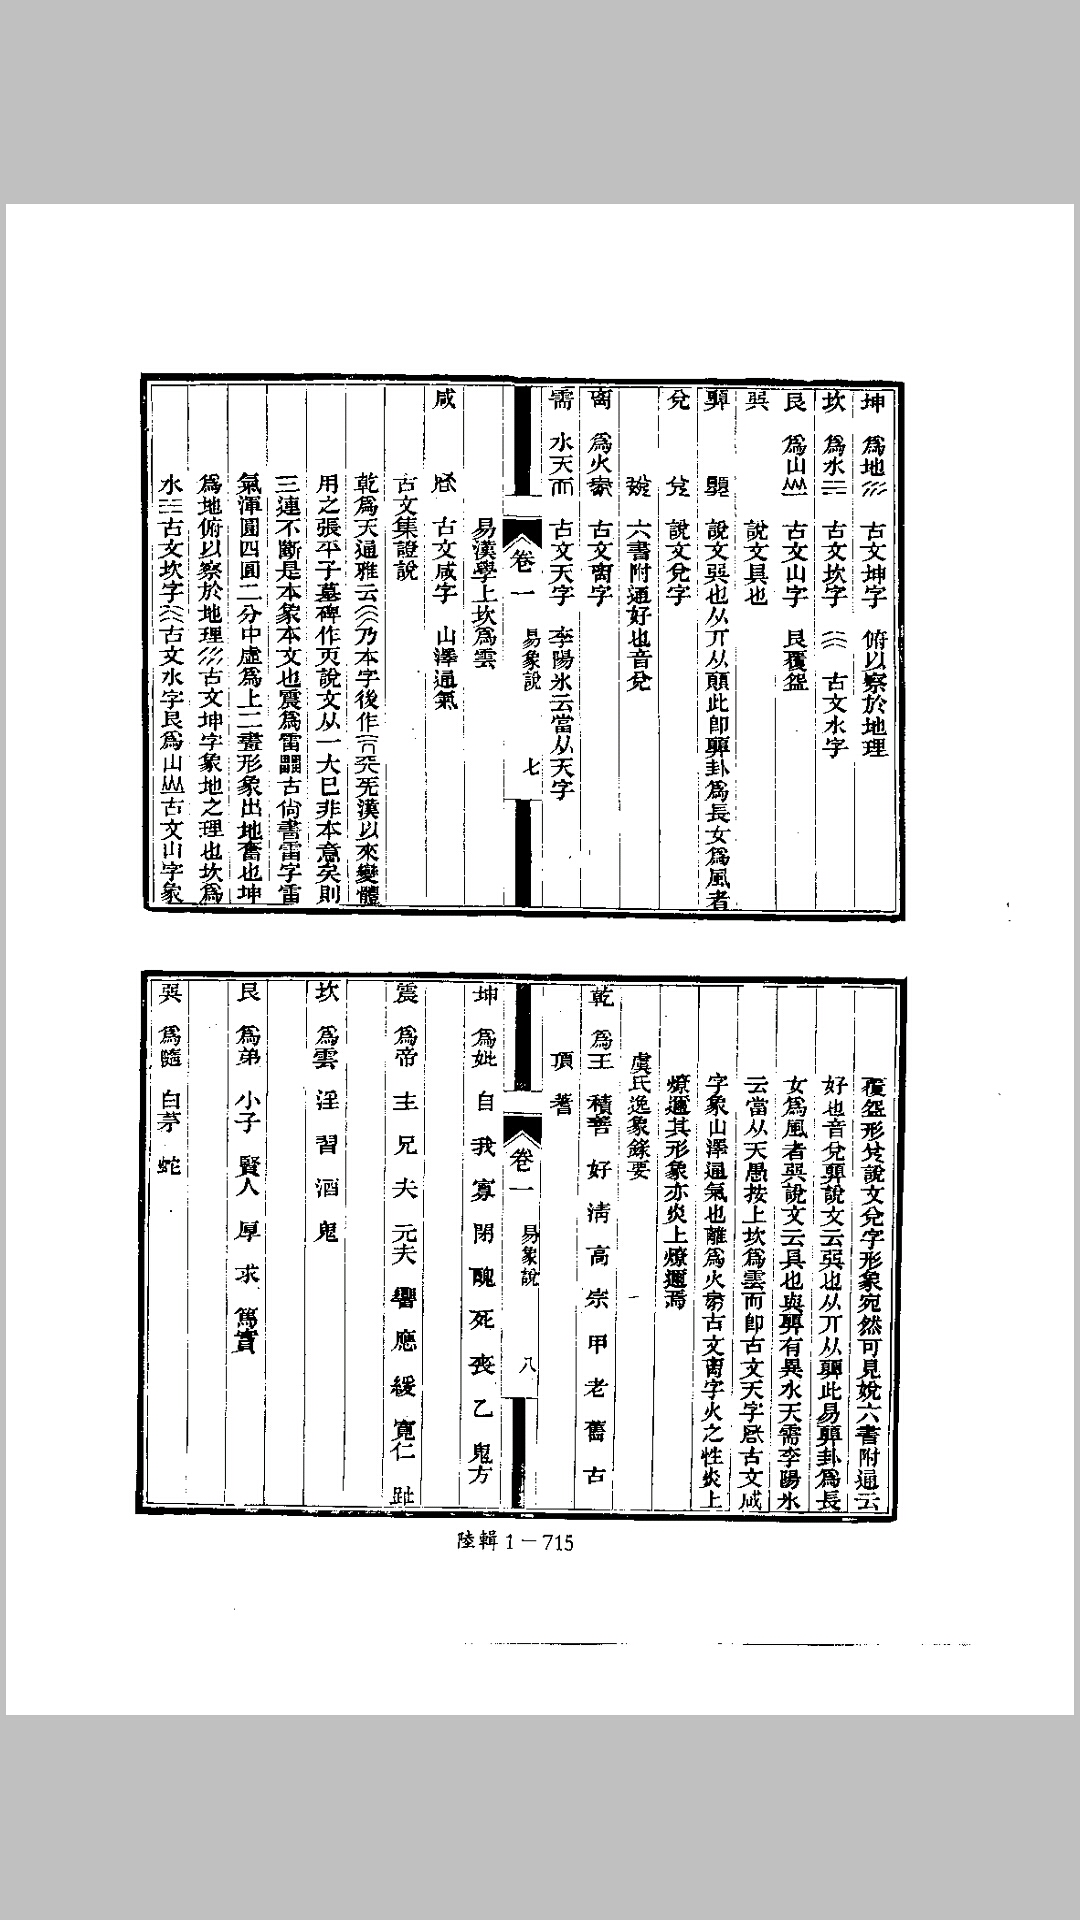 坤 爲地 古文坤字 俯以察於地理
坎 爲水 古文坎字 古文水字
艮 爲山 古文山字 艮覆盌
巽 說文具也
顨 說文巽也从丌从顨此卽顨卦爲長女爲風者
兌 兌 說文兌字
六書附通好也音兌
离 爲火 古文离字
需 水天而 古文天字 李陽冰云當从天字
卷一 易象說 七
易漢學上坎爲雲
咸 古文咸字 山澤通氣
古文集證說
乾爲天通雅云乃本字後作兲兂漢以來變體
用之張平子墓碑作兲說文从一大已非本意矣則
三連不斷是本象本文也震爲雷古尙書雷字雷
氣渾圓四圓二分中虛爲上二畫形象出地奮也坤
爲地俯以察於地理古文坤字象地之理也坎爲
水古文坎字古文水字艮爲山古文山字象
覆盌形兌說文兌字形象宛然可見㛜六書附通云
好也音兌顨說文云巽也从丌从顨此易顨卦爲長
女爲風者巽說文云具也與顨有異水天需李陽冰
云當从天愚按上坎爲雲而卽古文天字古文咸
字象山澤通氣也離爲火古文离字火之性炎上
燎邇其形象亦炎上燎邇焉
虞氏逸象錄要
乾 爲王 積善 好 淸 高 宗 甲 老 舊 古
頂 耆
卷一 易象說 八
坤 爲妣 自 我 寡 閉 醜 死 喪 乙 鬼方
震 爲帝 主 兄 夫 元夫 響 應 緩 寬仁 趾
坎 爲雲 淫 習 酒 鬼
艮 爲弟 小子 賢人 厚 求 篤實
巽 爲隨 白茅 蛇
陸輯 1－715